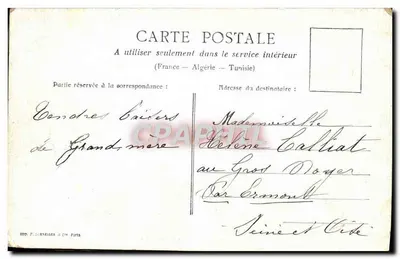 CARTE POSTALE
A utiliser seulement dans le service intérieur
(France — Algérie — Tunisie)
Partie réservée à la correspondance :
Adresse du destinataire :
Tendres baisers
de Grand-mère
Mademoiselle
Hélène Calliat
au Gros Noyer
Par Ermont
Seine et Oise
CARTHAPOSTALE